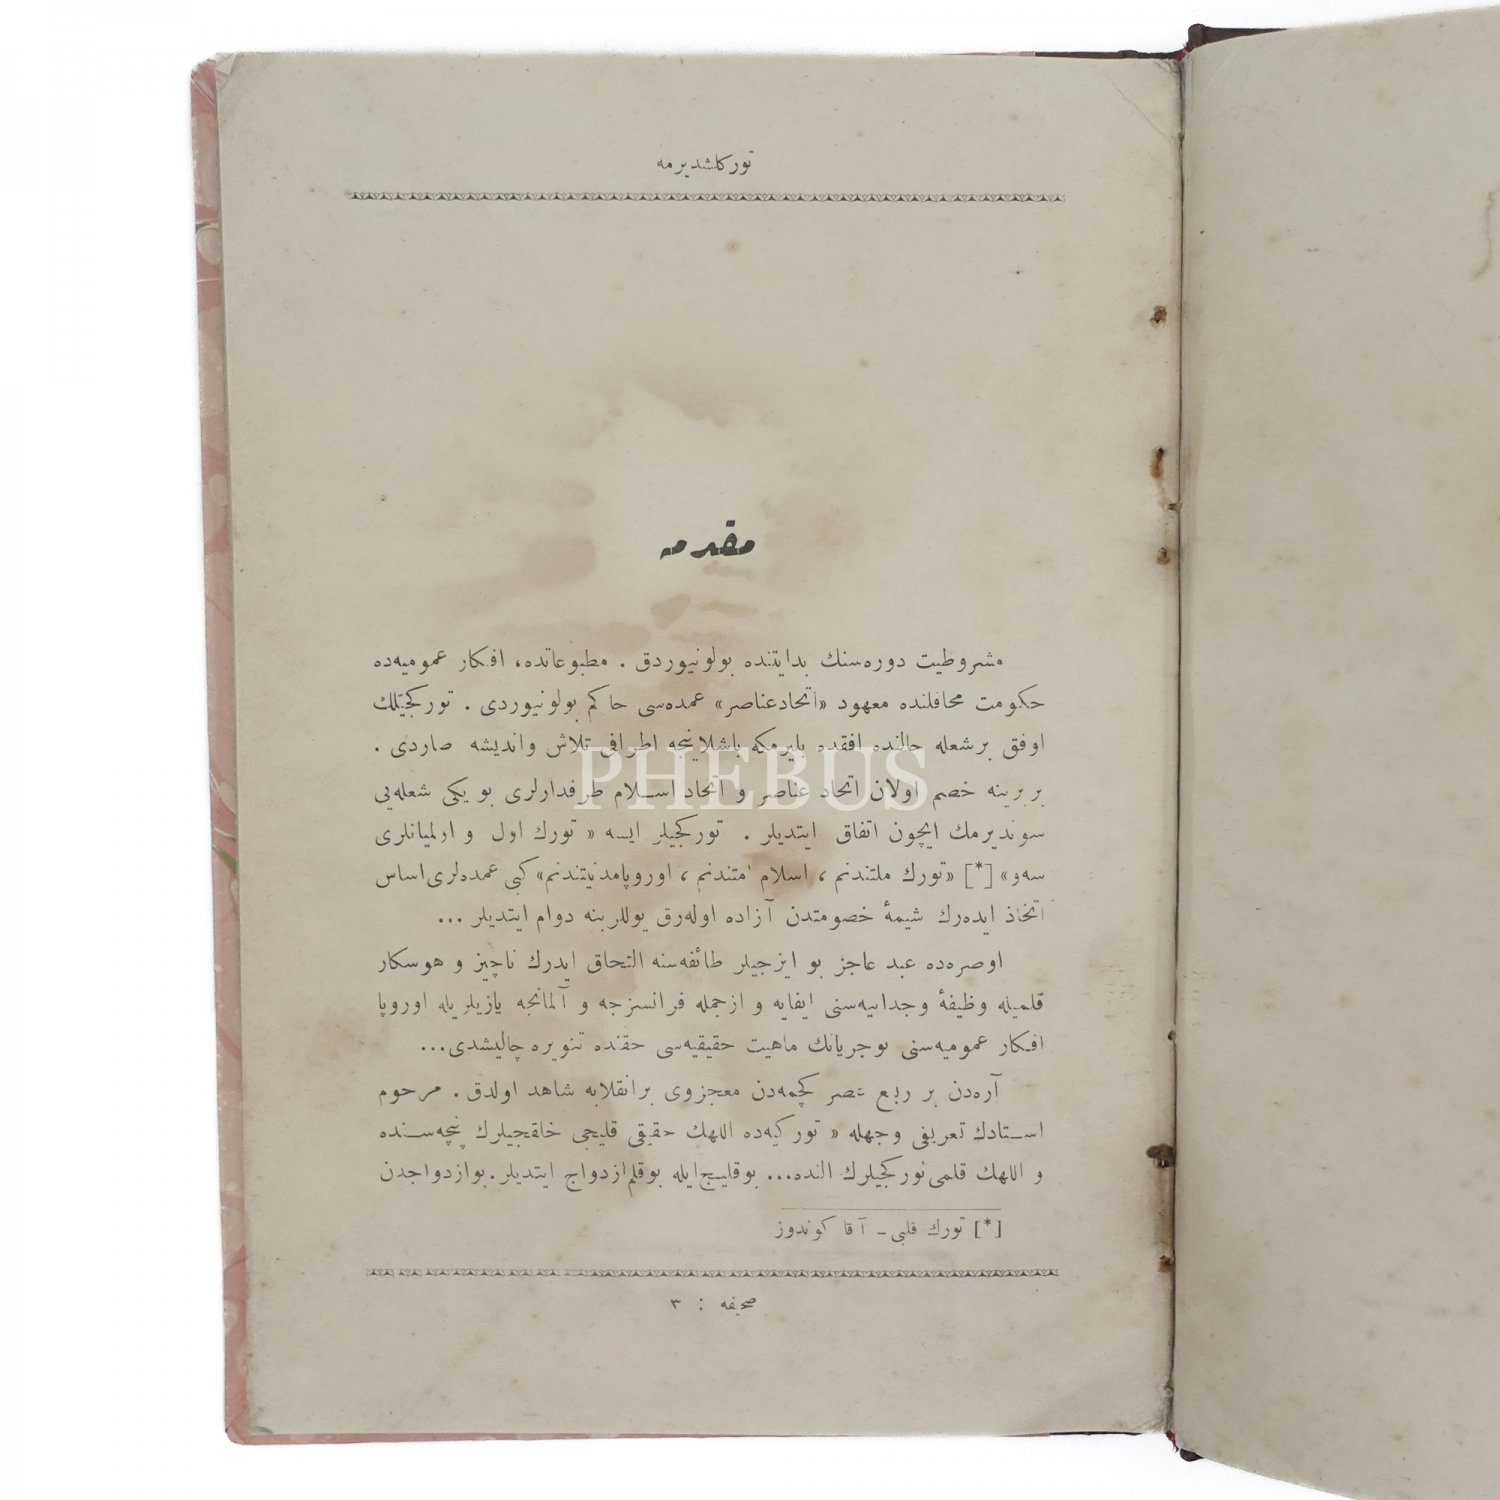 توركلشديرمه
مقدمه
مشروطيت دوره‌سنك بدايتنده بولونيوردق . مطبوعاتده، افكار عموميه‌ده
حكومت محافلنده معهود «اتحادعناصر» عمده‌سى حاكم بولونيوردى . توركجيلك
اوفق برشعله حالنده افقده بليرمكه باشلاينجه اطرافى تلاش وانديشه صاردى .
بربرينه خصم اولان اتحاد عناصر و اتحاد اسلام طرفدارلرى بو يكى شعله‌يى
سونديرمك ايچون اتفاق ايتديلر . توركجيلر ايسه « تورك اول و اولميانلرى
سه‌و» [*] «تورك ملتندنم ، اسلام امتندنم ، اوروپامدنيتندنم» كبى عمده‌لرى اساس
اتخاذ ايده‌رك شيمهٔ خصومتدن آزاده اوله‌رق يوللرينه دوام ايتديلر ...
اوصره‌ده عبد عاجز بو ايزجيلر طائفه‌سنه التحاق ايدرك ناچيز و هوسكار
قلميله وظيفهٔ وجدانيه‌سنى ايفايه و ازجمله فرانسزجه و آلمانجه يازيلريله اوروپا
افكار عموميه‌سنى بوجريانك ماهيت حقيقيه‌سى حقنده تنويره چاليشدى...
آره‌دن بر ربع عصر كچمه‌دن معجزوى برانقلابه شاهد اولدق . مرحوم
استادك تعريفى وجهله « توركيه‌ده اللهك حقيقى قليجى خلقجيلرك پنچه‌سنده
و اللهك قلمى توركجيلرك النده... بوقليج‌ايله بوقلم‌ازدواج ايتديلر.بوازدواجدن
[*] تورك قلبى - آقا كوندوز
صحيفه : ٣
PHEBUS